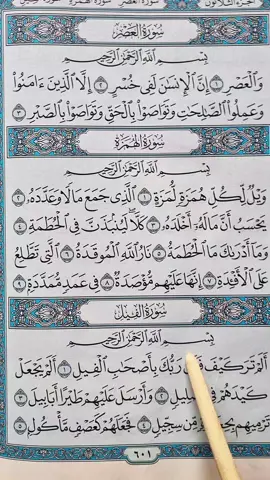 سُورَةُ العَصْرِ
بِسْمِ اللَّهِ الرَّحْمَٰنِ الرَّحِيمِ
وَالْعَصْرِ ١ إِنَّ الْإِنسَٰنَ لَفِى خُسْرٍ ٢ إِلَّا الَّذِينَ ءَامَنُوا۟
وَعَمِلُوا۟ الصَّٰلِحَٰتِ وَتَوَاصَوْا۟ بِالْحَقِّ وَتَوَاصَوْا۟ بِالصَّبْرِ ٣
سُورَةُ الهُمَزَةِ
بِسْمِ اللَّهِ الرَّحْمَٰنِ الرَّحِيمِ
وَيْلٌ لِّكُلِّ هُمَزَةٍ لُّمَزَةٍ ١ الَّذِى جَمَعَ مَالًا وَعَدَّدَهُۥ ٢
يَحْسَبُ أَنَّ مَالَهُۥٓ أَخْلَدَهُۥ ٣ كَلَّا لَيُنۢبَذَنَّ فِى الْحُطَمَةِ ٤
وَمَآ أَدْرَىٰكَ مَا الْحُطَمَةُ ٥ نَارُ اللَّهِ الْمُوقَدَةُ ٦ الَّتِى تَطَّلِعُ
عَلَى الْأَفْـِٔدَةِ ٧ إِنَّهَا عَلَيْهِم مُّؤْصَدَةٌ ٨ فِى عَمَدٍ مُّمَدَّدَةٍۭ ٩
سُورَةُ الفِيلِ
بِسْمِ اللَّهِ الرَّحْمَٰنِ الرَّحِيمِ
أَلَمْ تَرَ كَيْفَ رَبُّكَ بِأَصْحَٰبِ الْفِيلِ ١ أَلَمْ يَجْعَلْ
كَيْدَهُمْ فِى تَضْلِيلٍ ٢ وَأَرْسَلَ عَلَيْهِمْ طَيْرًا أَبَابِيلَ ٣
تَرْمِيهِم مِّن سِجِّيلٍ ٤ فَجَعَلَهُمْ كَعَصْفٍ مَّأْكُولٍۭ ٥
٦٠١